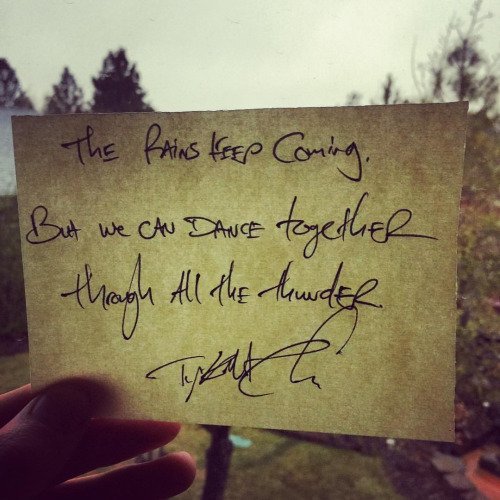 The Rains Keep Coming.
But we can Dance together
through all the thunder.